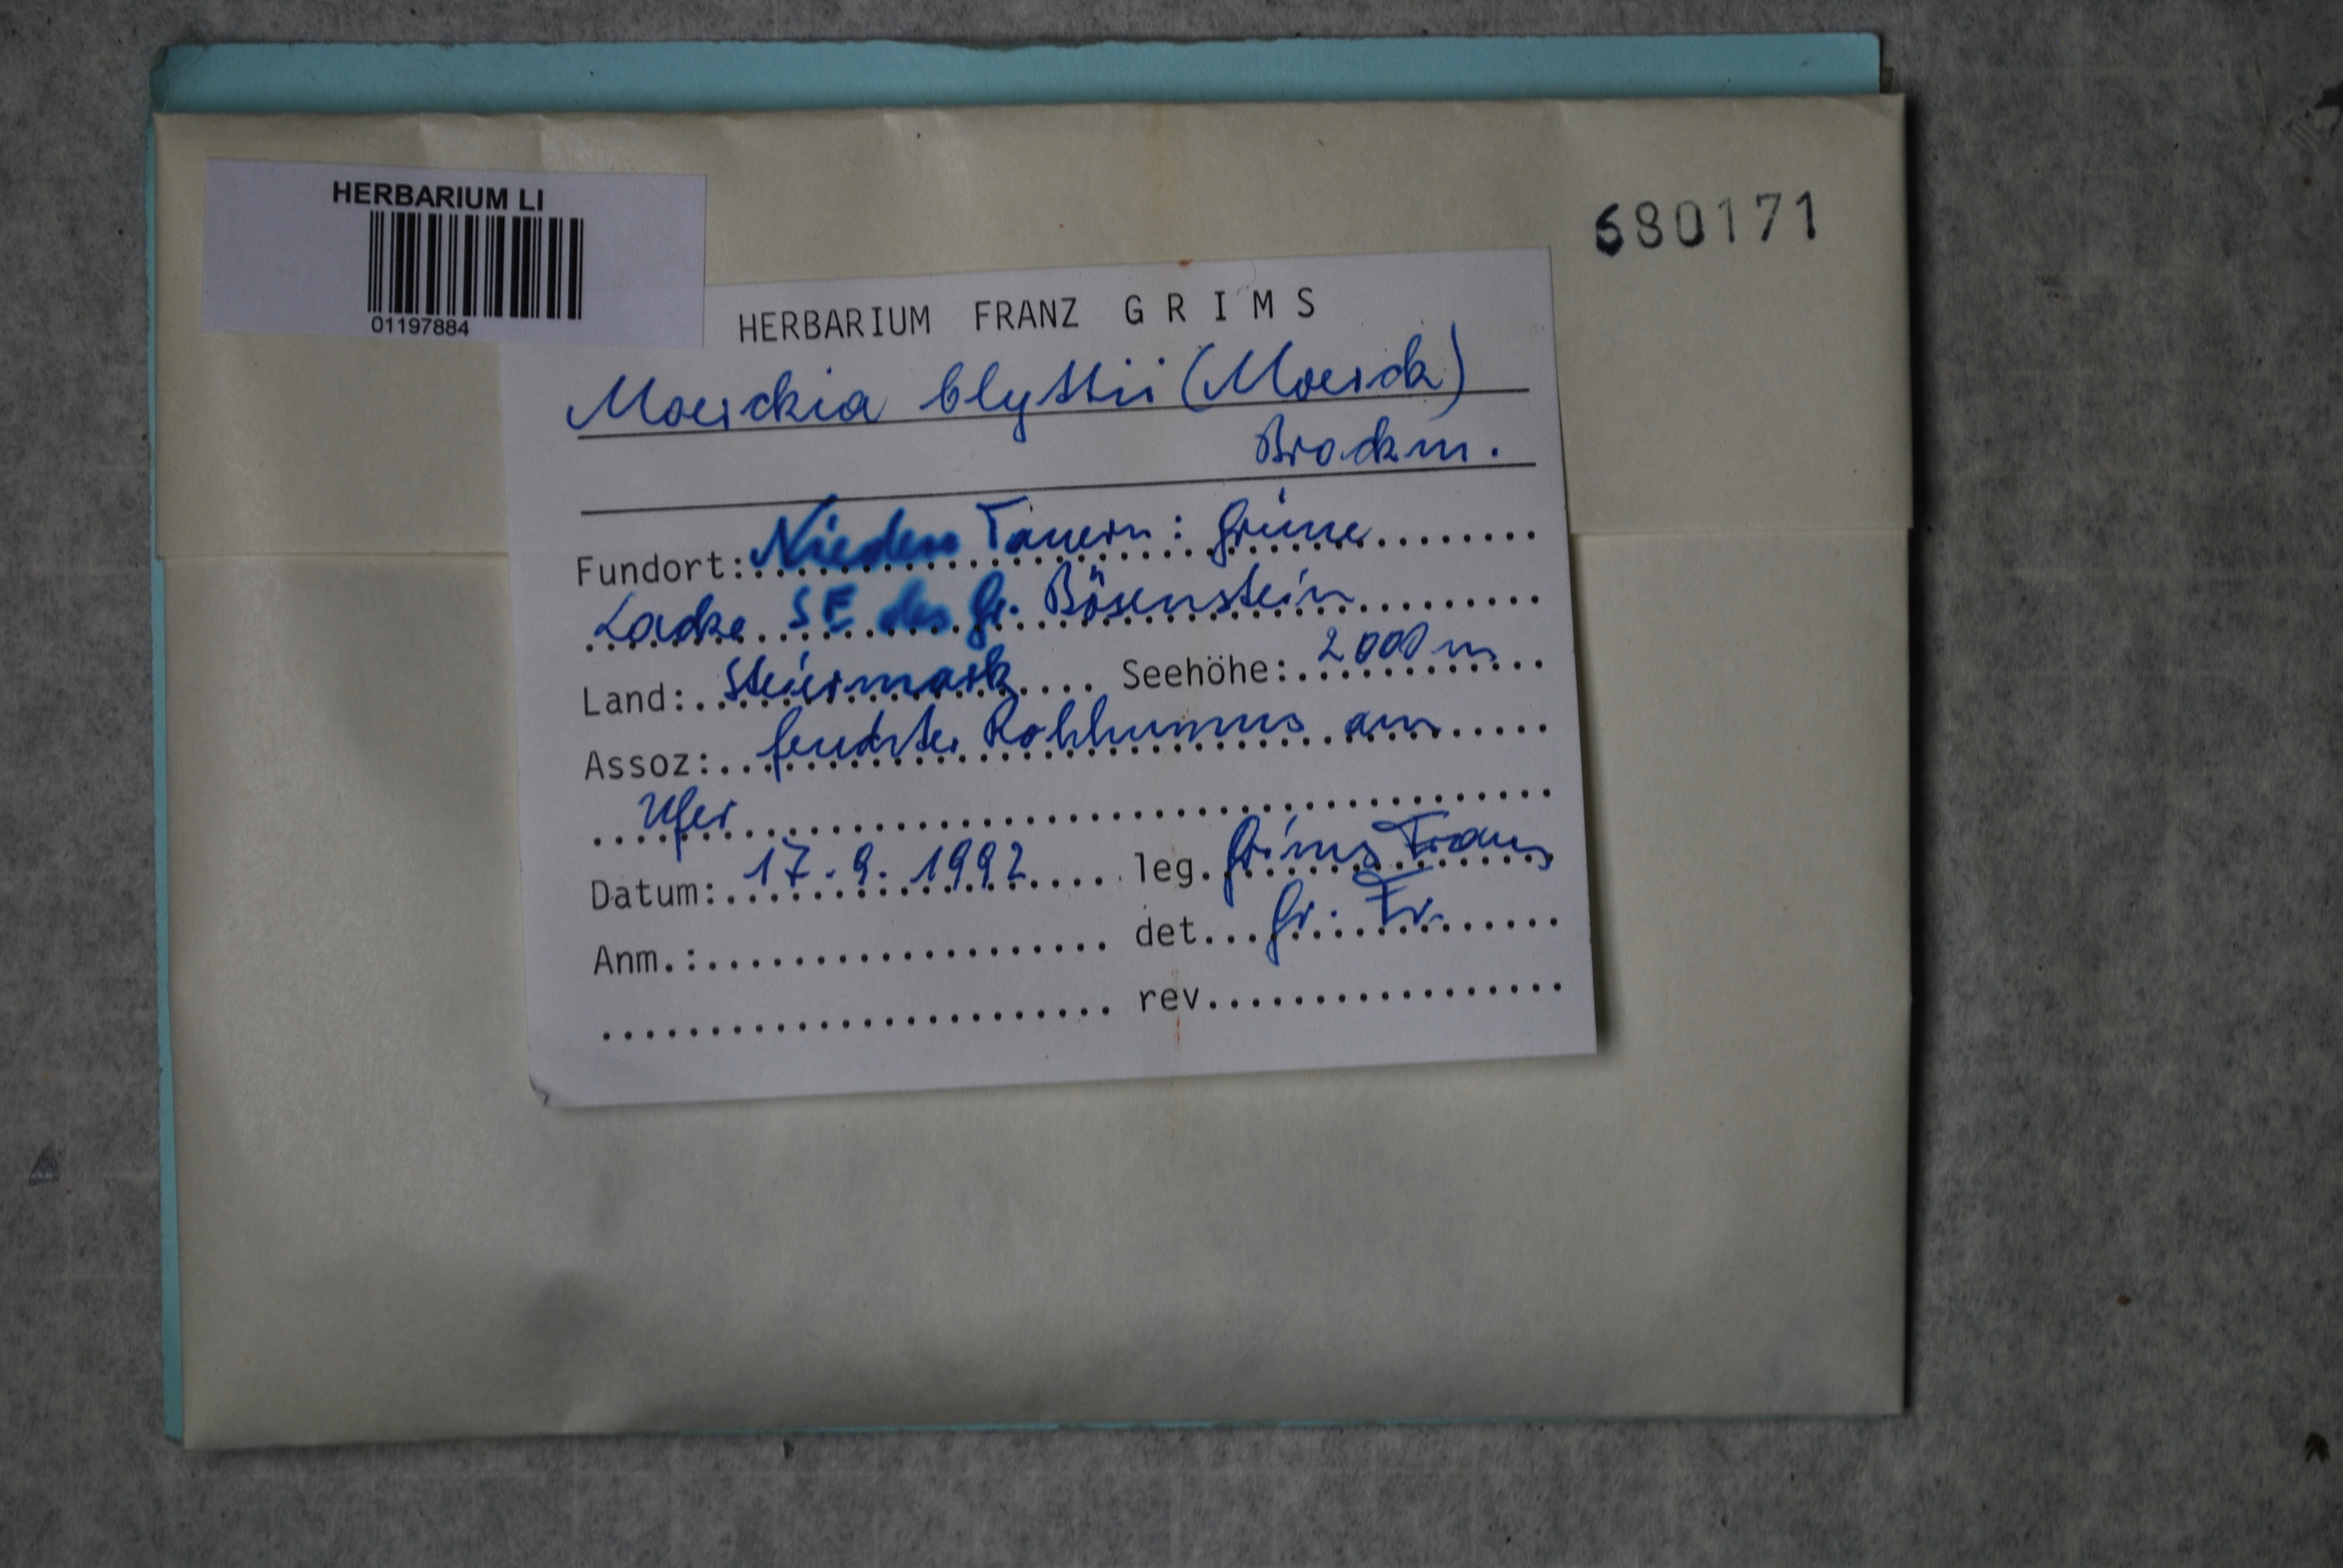 HERBARIUM LI
01197884
680171
HERBARIUM FRANZ G R I M S
Moerckia blyttii (Moerck)
Brockm.
Fundort: Niedere Tauern: Grüne
Lacke SE des Gr. Bösenstein
Land: Steiermark Seehöhe: 2000 m
Assoz: feuchter Rohhumus am
Ufer
Datum: 17.9.1992 leg. Grims Franz
Anm.: det. Gr. Fr.
rev.